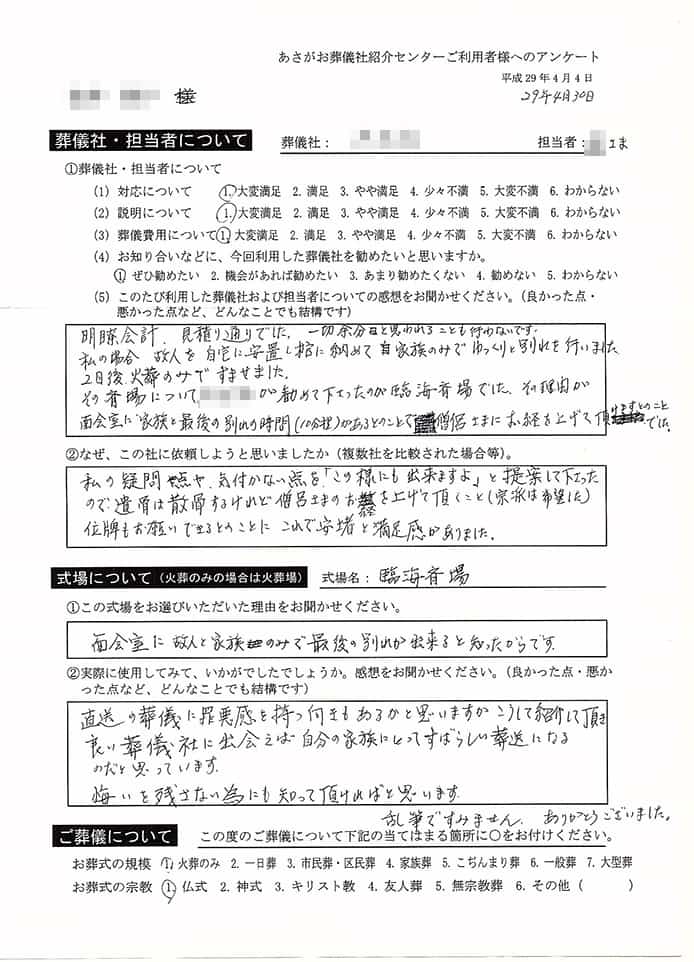 あさがお葬儀社紹介センターご利用者様へのアンケート
平成29年4月4日
29年4月30日
様
葬儀社・担当者について 葬儀社： 担当者： さま
①葬儀社・担当者について
(1) 対応について 1.大変満足 2.満足 3.やや満足 4.少々不満 5.大変不満 6.わからない
(2) 説明について 1.大変満足 2.満足 3.やや満足 4.少々不満 5.大変不満 6.わからない
(3) 葬儀費用について 1.大変満足 2.満足 3.やや満足 4.少々不満 5.大変不満 6.わからない
(4) お知り合いなどに、今回利用した葬儀社を勧めたいと思いますか。
①ぜひ勧めたい 2.機会があれば勧めたい 3.あまり勧めたくない 4.勧めない 5.わからない
(5) このたび利用した葬儀社および担当者についての感想をお聞かせください。（良かった点・
悪かった点など、どんなことでも結構です）
明瞭会計、見積り通りでした。一切余分だと思われることも行わないです。
私の場合 故人を自宅に安置し棺に納めて自家族のみでゆっくりと別れを行いました
2日後、火葬のみですませました。
その斎場について が勧めて下さったのが臨海斎場でした。その理由が
面会室にご家族と最後の別れの時間(10分程)があるとのことで 僧侶さまにお経を上げて頂けますとのこと
でした。
②なぜ、この社に依頼しようと思いましたか（複数社を比較された場合等）。
私の疑問点や、気付かない点を「この様にも出来ますよ」と提案して下さった
ので遺骨は散骨するけれど僧呂さまのお経を上げて頂くこと(宗派は希望した)
位牌もお願いできるとのことに これで安堵と満足感がありました。
式場について（火葬のみの場合は火葬場） 式場名：臨海斎場
①この式場をお選びいただいた理由をお聞かせください。
面会室に故人と家族のみで最後の別れが出来ると知ったからです。
②実際に使用してみて、いかがでしたでしょうか。感想をお聞かせください。（良かった点・悪か
った点など、どんなことでも結構です）
直送の葬儀に罪悪感を持つ向きもあるかと思いますがこうして紹介して頂き
良い葬儀社に出会えば自分の家族にとってすばらしい葬送になる
のだと思っています。
悔いを残さない為にも知って頂ければと思います。
乱筆ですみません。ありがとうございました。
ご葬儀について この度のご葬儀について下記の当てはまる箇所に○をお付けください。
お葬式の規模 1.火葬のみ 2.一日葬 3.市民葬・区民葬 4.家族葬 5.こぢんまり葬 6.一般葬 7.大型葬
お葬式の宗教 1.仏式 2.神式 3.キリスト教 4.友人葬 5.無宗教葬 6.その他（ ）